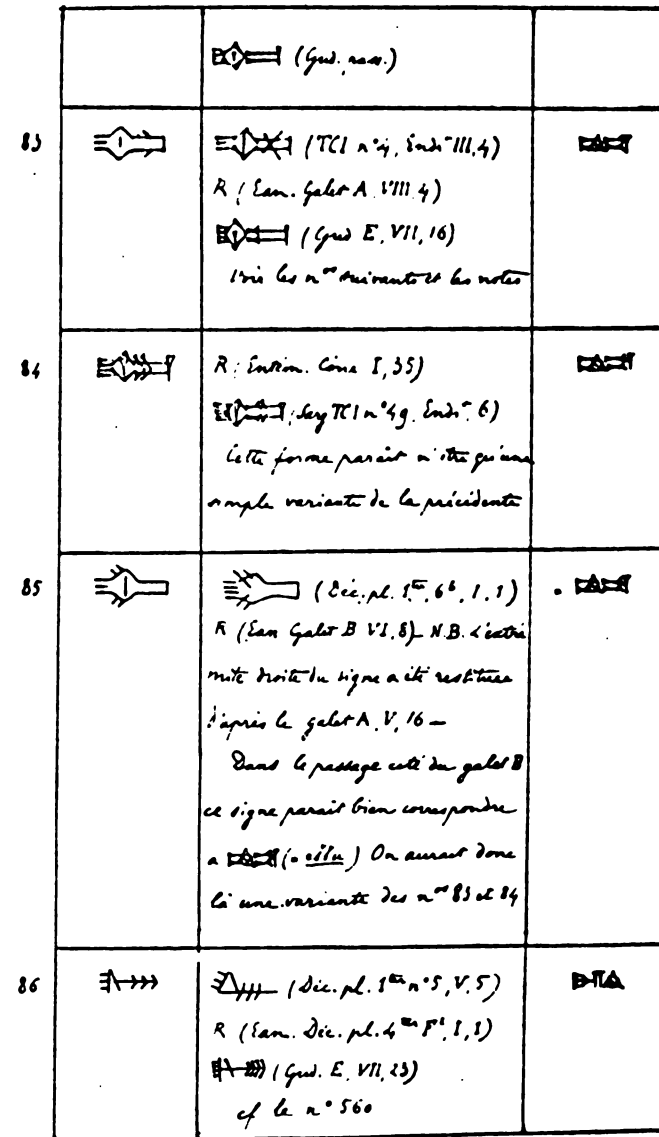 (Gud. pass.)
83
(TCI n°4, Endr. III, 4)
R (Ean. Galet A. VIII. 4)
(Gud E, VII, 16)
Voir les n os suivants et les notes
84
R (Entém. Cône I, 35)
(Sarg TCI n°49. Endr. 6)
Cette forme parait n'être qu'une
simple variante de la précédente
85
(Déc. pl. 1 ter, 6 b, I, 1)
R (Ean Galet B VI, 8) _ N.B. L'extré
mité droite du signe a été restituée
d'après le galet A. V, 16 _
Dans le passage cité du galet B
ce signe parait bien correspondre
a (= ) On aurait donc
là une variante des n os 83 et 84
86
(Déc. pl. 1 ter n° 5, V. 5)
R (Ean. Déc. pl. 4 ter F¹, I, 1)
(Gud. E, VII, 23)
cf le n° 560